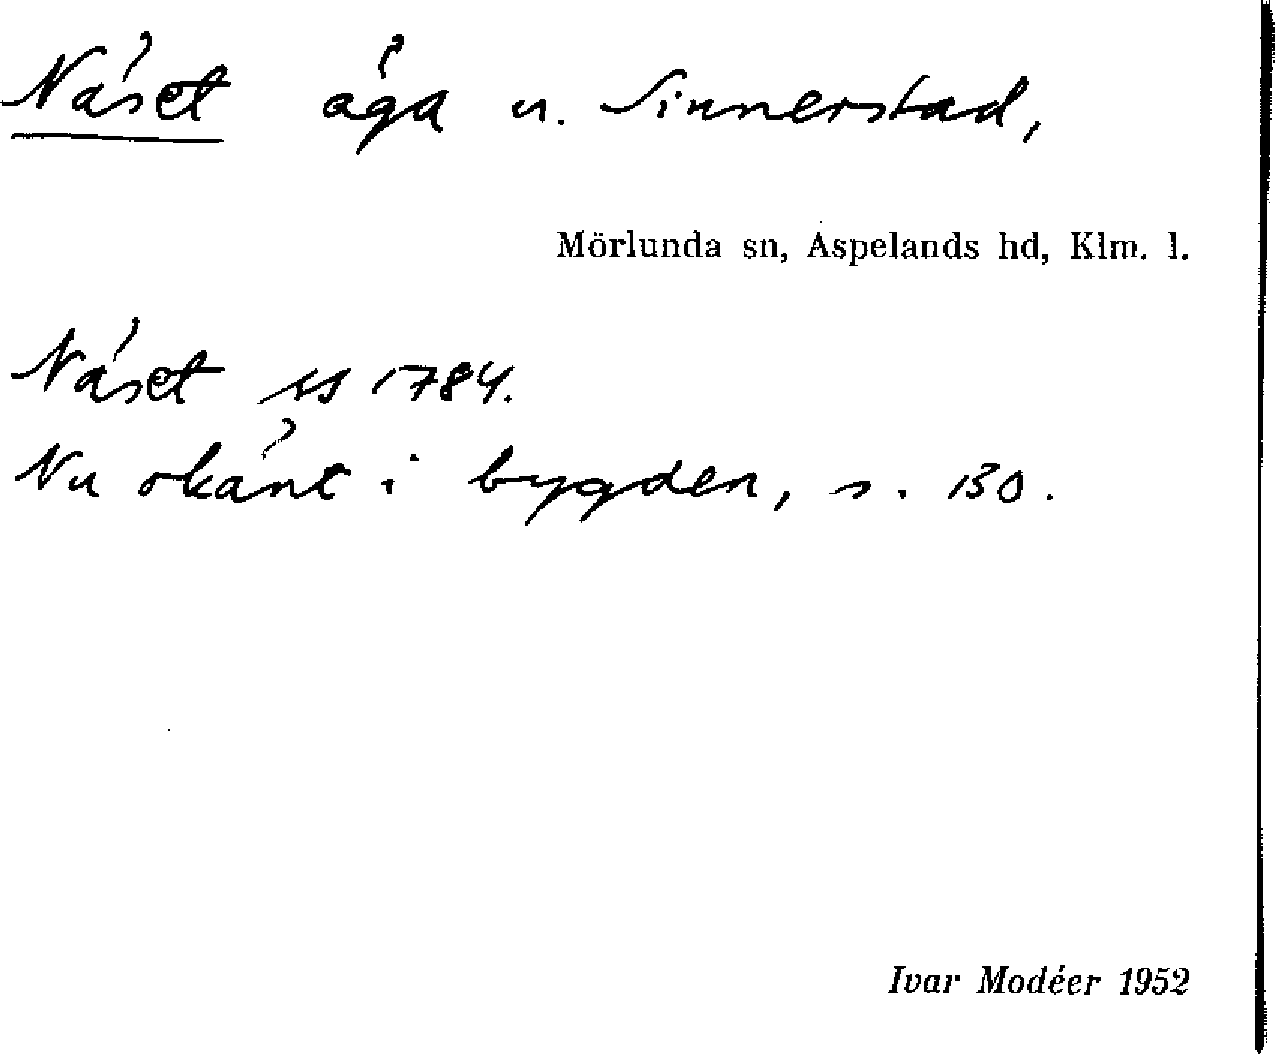 Näset äga u. Sinnerstad,
Mörlunda sn, Aspelands hd, Klm. l.
Näset ss 1784.
Nu okänt i bygden, s. 130.
Ivar Modéer 1952